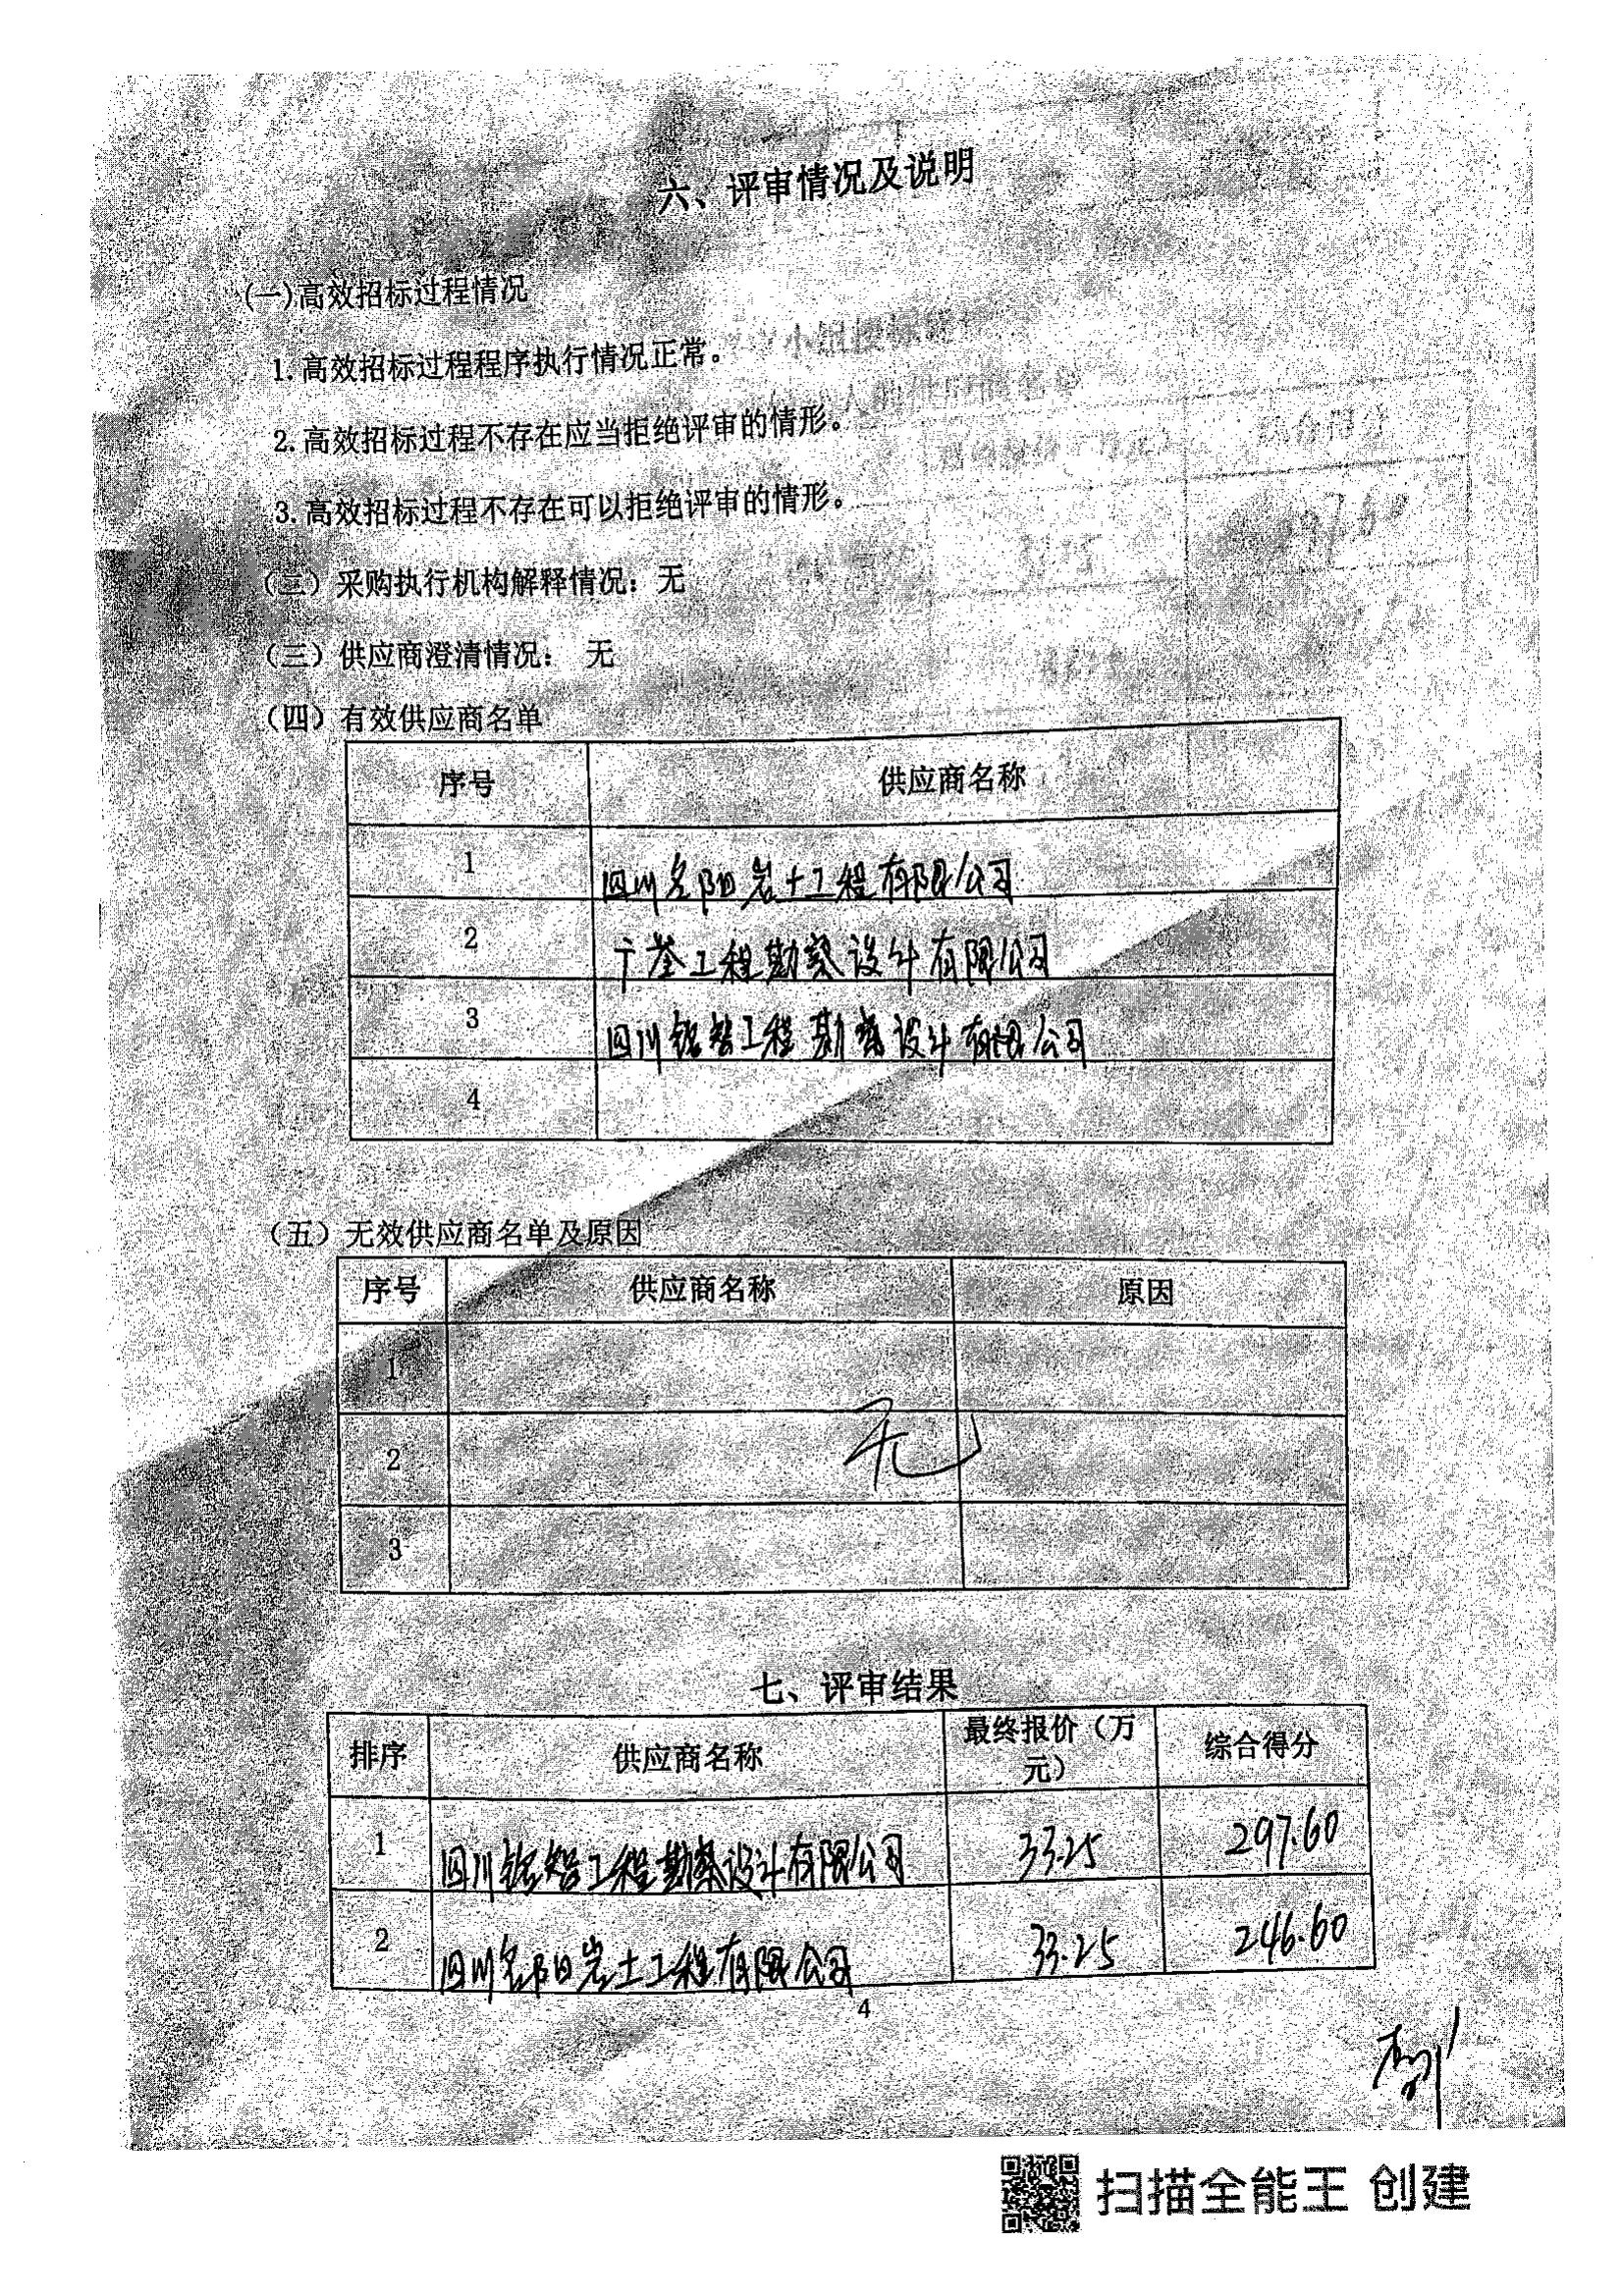 六、评审情况及说明
(一)高效招标过程情况
1.高效招标过程程序执行情况正常。
2.高效招标过程不存在应当拒绝评审的情形。
3.高效招标过程不存在可以拒绝评审的情形。
(二)采购执行机构解释情况：无
(三)供应商澄清情况： 无
(四)有效供应商名单
序号 供应商名称
1 四川名阳岩土工程有限公司
2 工程勘察设计有限公司
3 四川 工程勘察设计有限公司
4
(五)无效供应商名单及原因
序号 供应商名称 原因
1
2 无
3
七、评审结果
排序 供应商名称 最终报价（万元） 综合得分
1 四川 工程勘察设计有限公司 33.25 297.60
2 四川名阳岩土工程有限公司 33.25 246.60
4
扫描全能王 创建